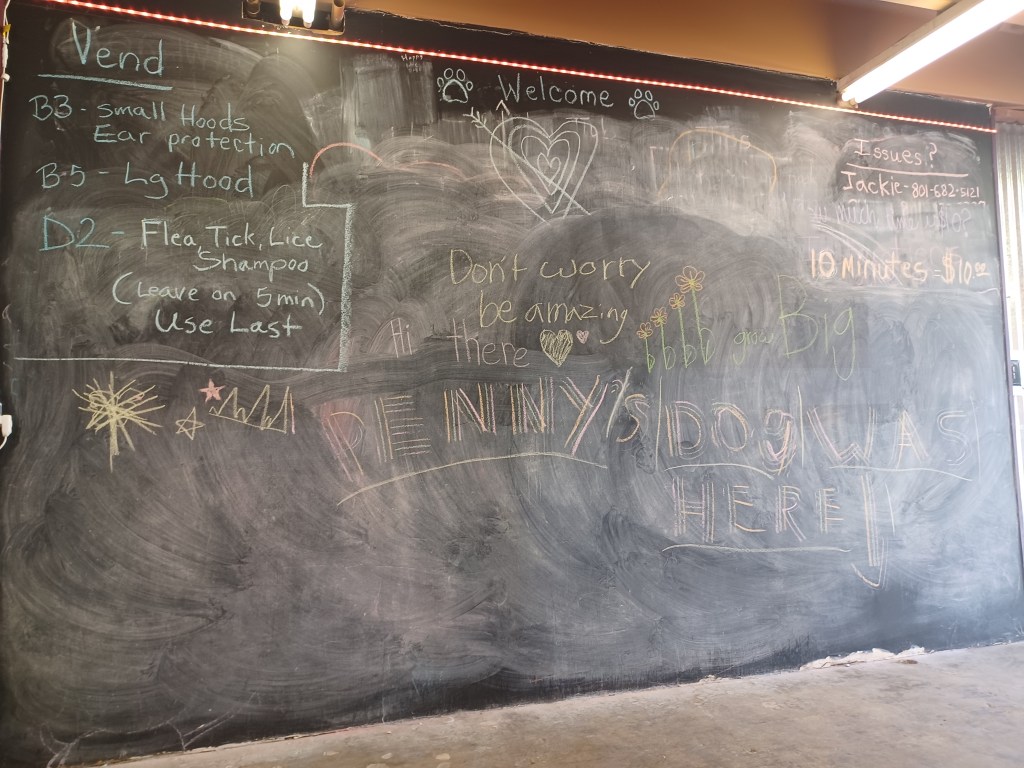 Vend
B3 - small Hoods
Ear protection
B-5 - Lg Hood
D2 - Flea, Tick, Lice
Shampoo
(Leave on 5 min)
Use Last
Welcome
Issues?
Jackie - 801-682-5121
10 Minutes = $10.00
Don't worry
be amazing
Hi there
grow Big
PENNY'S DOg WAS
HERE